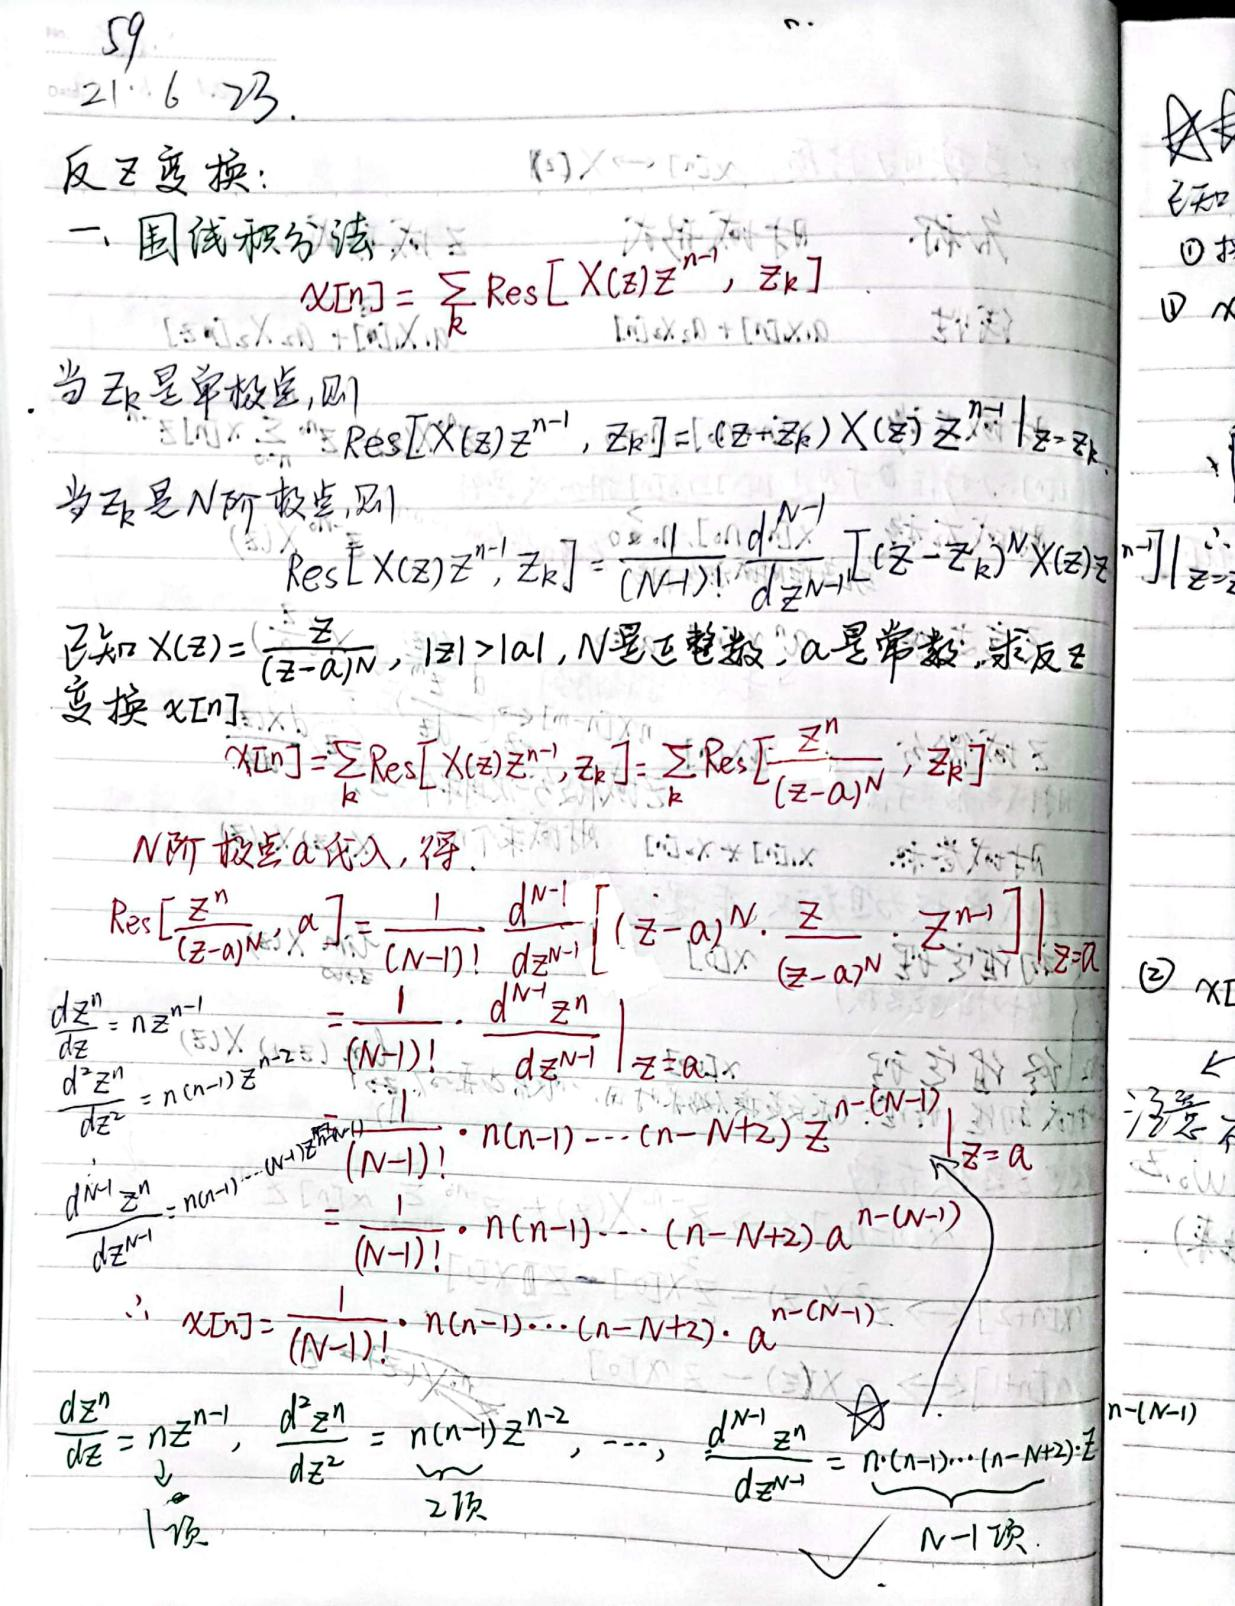 59
21. 6 23.
反Z变换:
一、围线积分法
x[n] = ∑_k Res[X(z)z^{n-1}, z_k]
当 z_k 是单极点,则
Res[X(z)z^{n-1}, z_k] = (z-z_k)X(z)z^{n-1}|_{z=z_k}
当 z_k 是N阶极点,则
Res[X(z)z^{n-1}, z_k] = \frac{1}{(N-1)!} \frac{d^{N-1}}{dz^{N-1}}[(z-z_k)^N X(z)z^{n-1}]|_{z=z
已知 X(z) = \frac{z}{(z-a)^N}, |z|>|a|, N是正整数, a是常数,求反z
变换 x[n]
x[n] = ∑_k Res[X(z)z^{n-1}, z_k] = ∑_k Res[\frac{z^n}{(z-a)^N}, z_k]
N阶极点a代入,得.
Res[\frac{z^n}{(z-a)^N}, a] = \frac{1}{(N-1)!} \frac{d^{N-1}}{dz^{N-1}}[(z-a)^N · \frac{z}{(z-a)^N} · z^{n-1}]|_{z=a}
\frac{dz^n}{dz} = nz^{n-1}
= \frac{1}{(N-1)!} · \frac{d^{N-1}z^n}{dz^{N-1}}|_{z=a}
\frac{d^2z^n}{dz^2} = n(n-1)z^{n-2}
= \frac{1}{(N-1)!} · n(n-1)----(n-N+2)z^{n-(N-1)}|_{z=a}
\frac{d^{N-1}z^n}{dz^{N-1}} = n(n-1)····(N-1)
= \frac{1}{(N-1)!} · n(n-1)----(n-N+2)a^{n-(N-1)}
∴ x[n] = \frac{1}{(N-1)!} · n(n-1)···(n-N+2)·a^{n-(N-1)}
\frac{dz^n}{dz} = nz^{n-1}, \frac{d^2z^n}{dz^2} = n(n-1)z^{n-2}, ----, \frac{d^{N-1}z^n}{dz^{N-1}} = n·(n-1)···(n-N+2)·z^{n-(N-1)}
1项
2项
N-1项.
已知
①
①
∴
② x[
注意